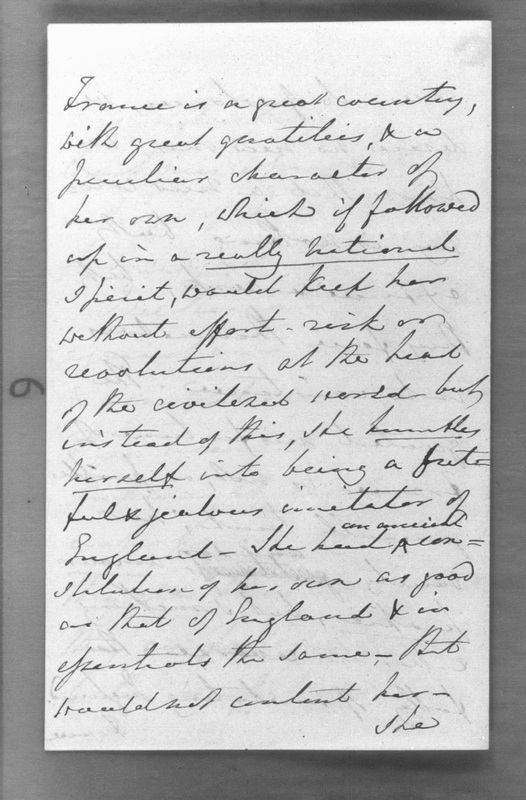 France is a great country,
with great qualities, & a
peculiar character of
her own, which if followed
up in a really national
spirit, would keep her
without effort - risk or
revolutions at the head
of the civilized world but
instead of this, she humbles
herself into being a fret=
ful & jealous imitator of
England - She had an ancient con=
stitution of her own as good
as that of England & in
essentials the same, - But
would not content her -
she
6